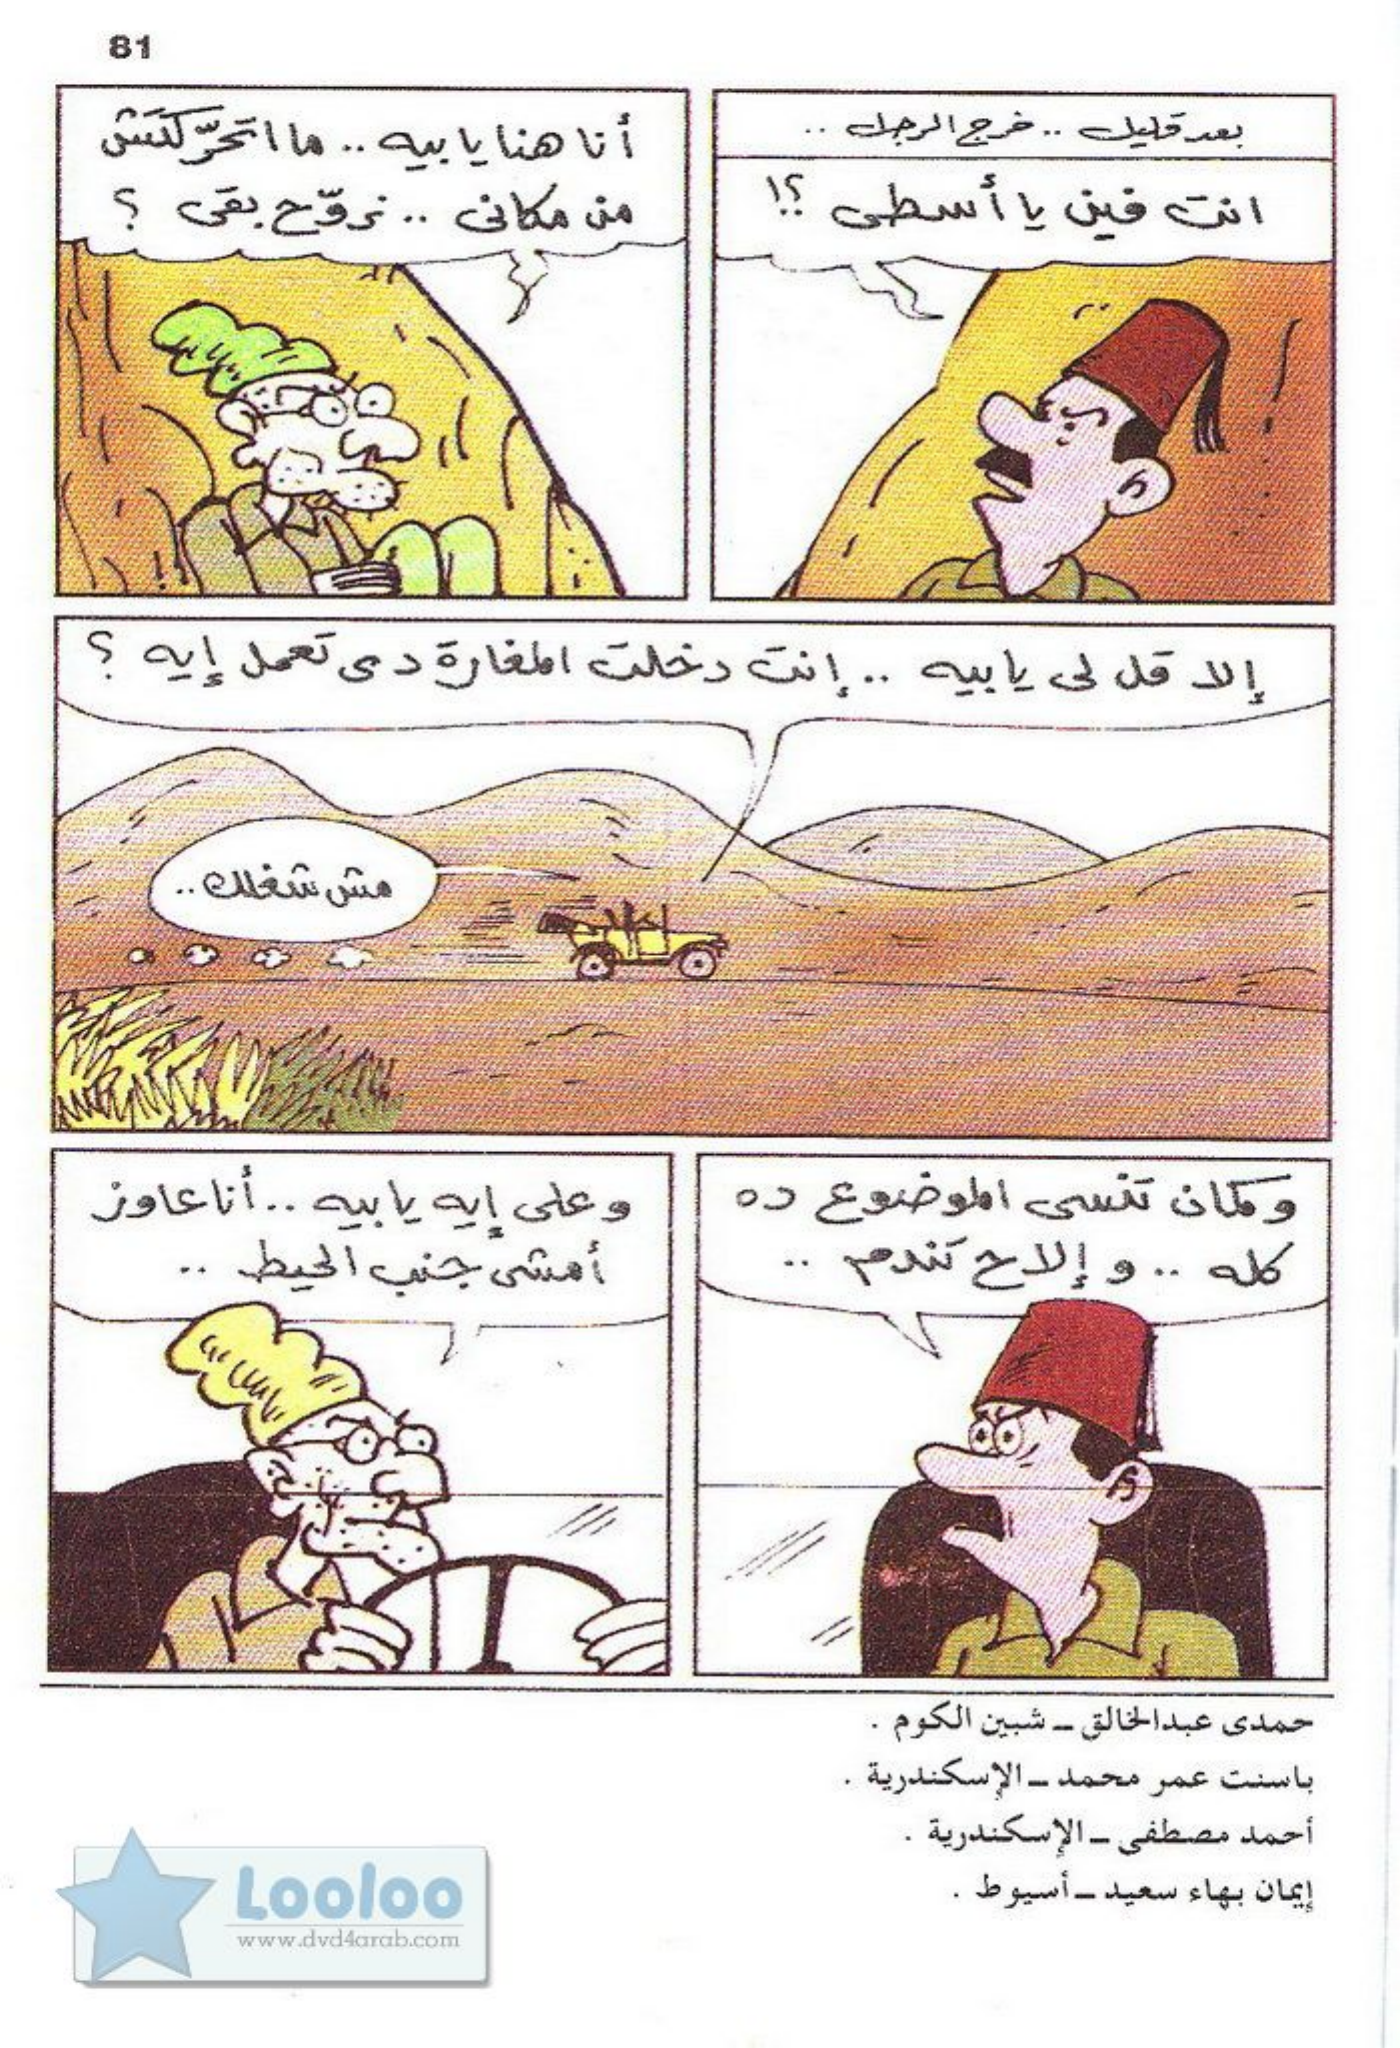 81
بعد قليل .. خرج الرجل ..
انت فين يا أسطى ؟!
أنا هنا يا بيه .. ما اتَحَرَّكتَش
من مكانى .. نروّح بقى ؟
إلا قل لى يا بيه .. إنت دخلت المغارة دى تعمل إيه ؟
مش شغلك ..
وكمان تنسى الموضوع ده
كله .. وإلا ح تندم ..
وعلى إيه يا بيه .. أنا عاوز
أمشى جنب الحيط ..
حمدى عبدالخالق ــ شبين الكوم .
باسنت عمر محمد ــ الإسكندرية .
أحمد مصطفى ــ الإسكندرية .
إيمان بهاء سعيد ــ أسيوط .
Looloo
www.dvd4arab.com